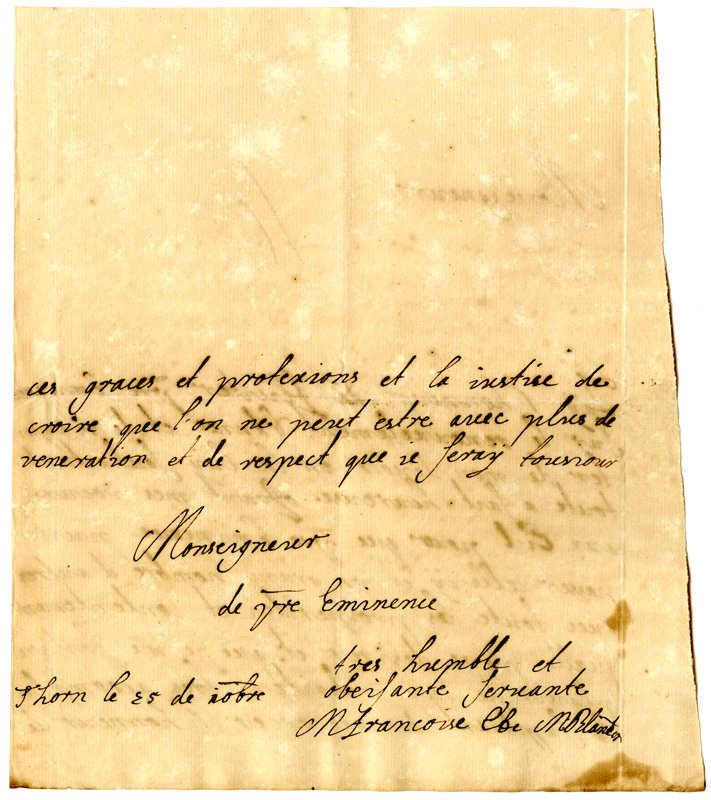 ces graces et protexions et la iustise de
croire que l'on ne peut estre auec plus de
veneration et de respect que ie seray tousiour
Monseigneur
de vre Eminence
tres humble et
obeisante seruante
Thorn le 25 de
M francoise